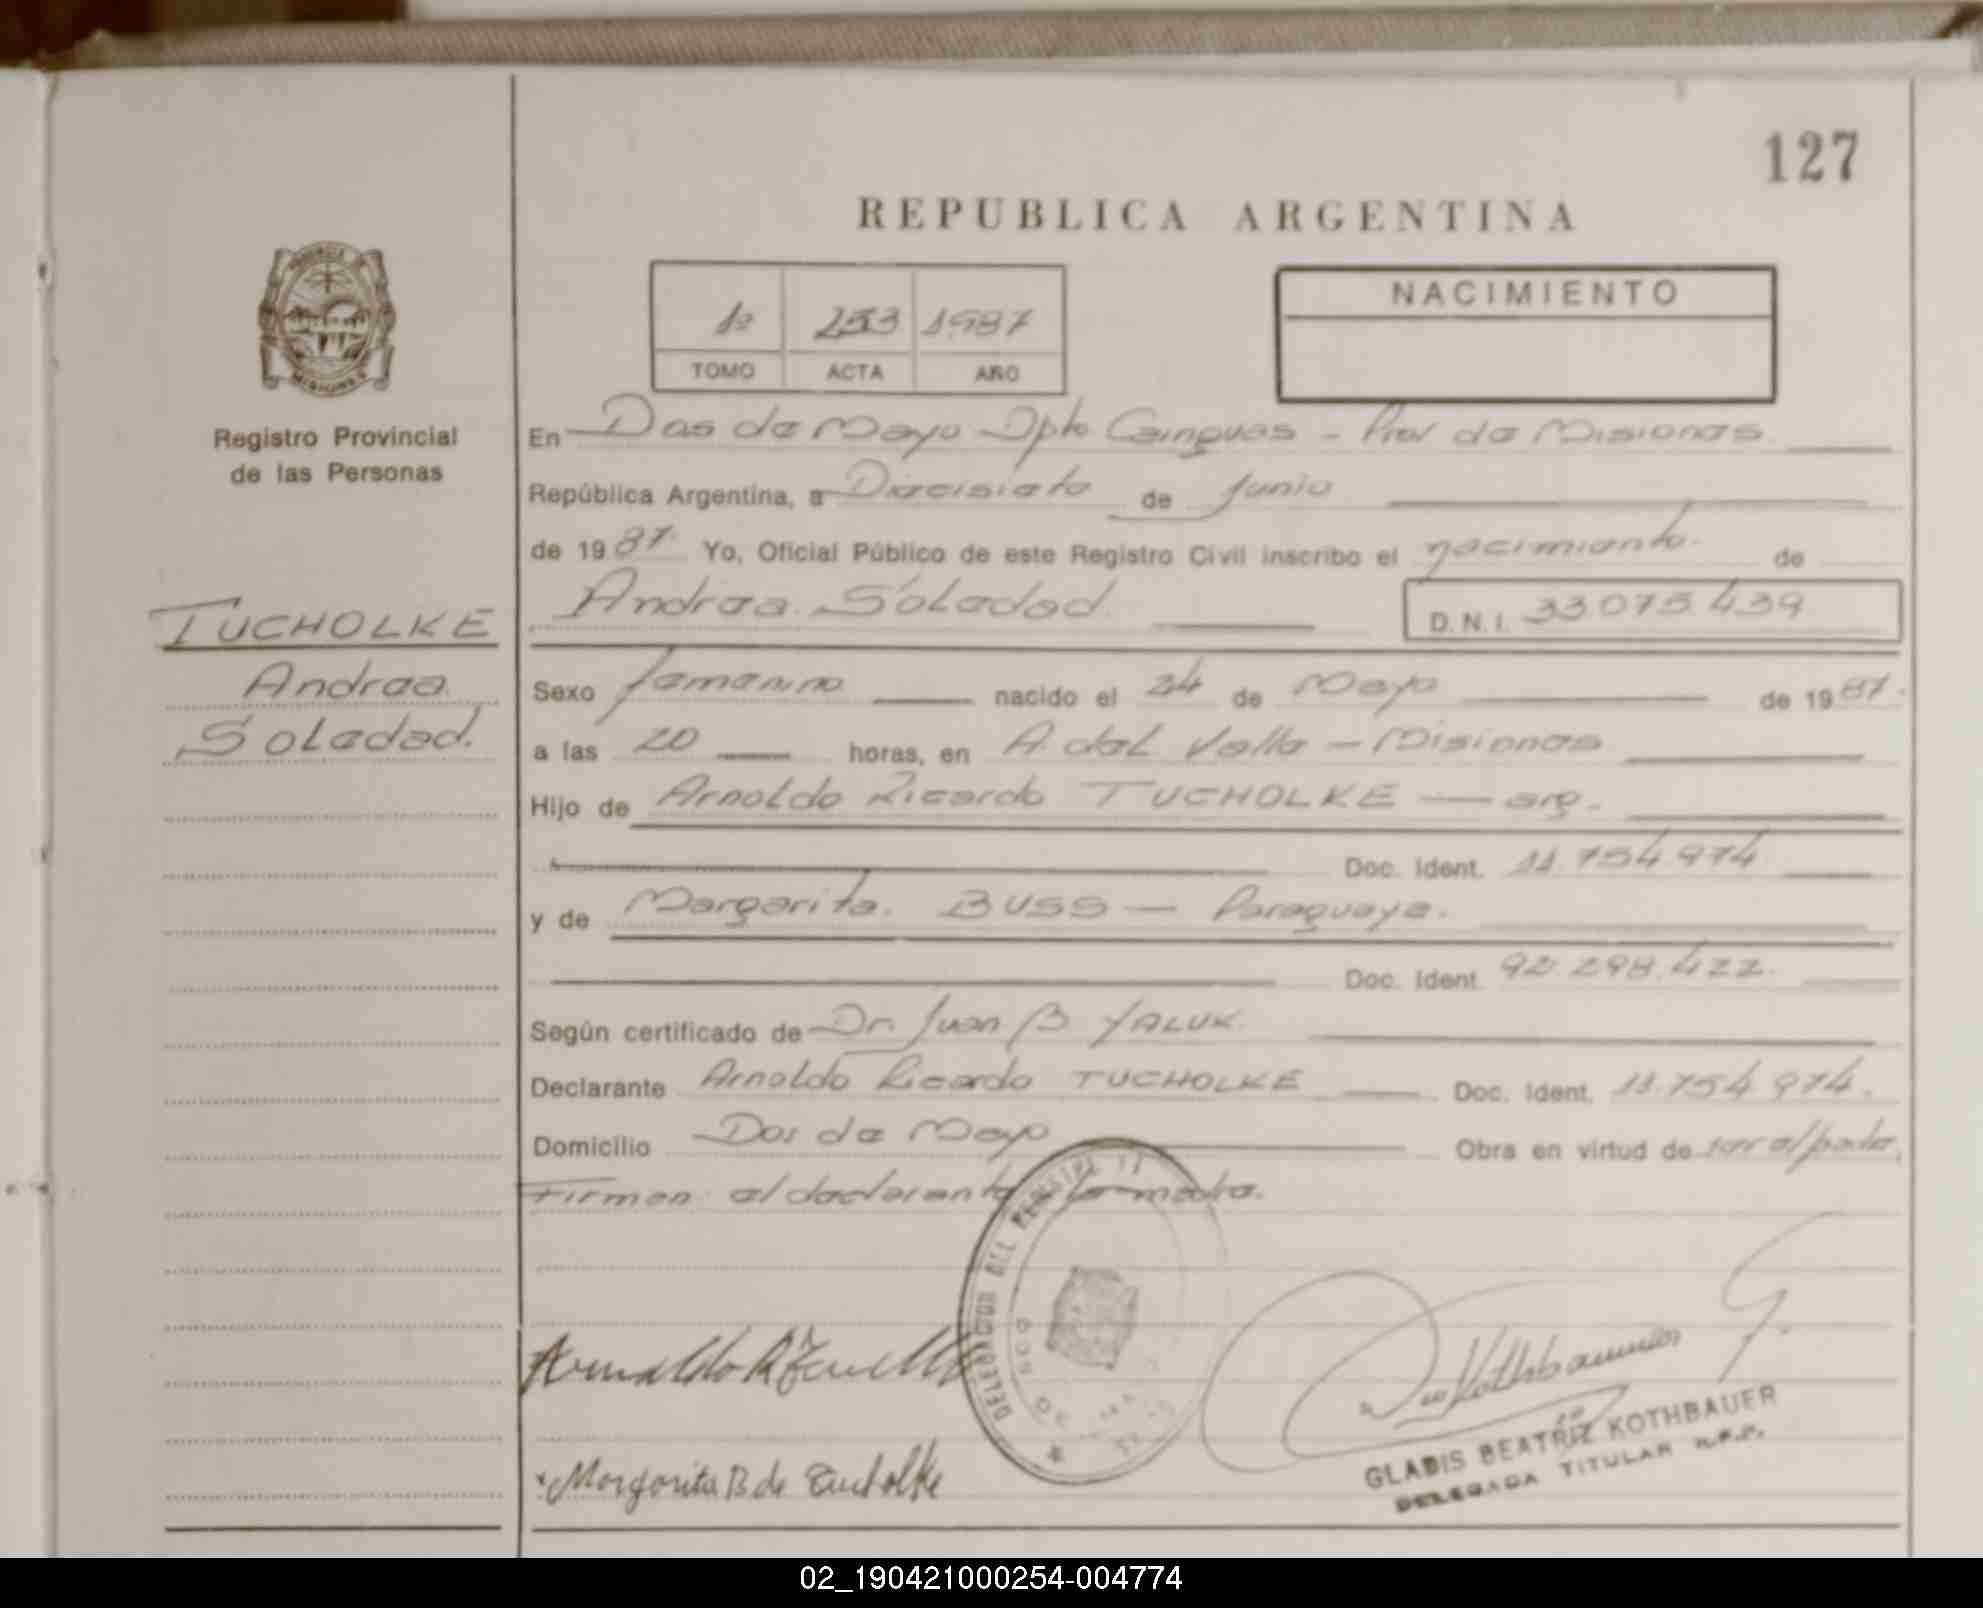 127
REPUBLICA ARGENTINA
PROVINCIA DE
MISIONES
Registro Provincial
de las Personas
1º 253 1987
TOMO ACTA AÑO
NACIMIENTO
En Dos de Mayo Dpto. Cainguas - Prov de Misiones
República Argentina, a Diecisiete de Junio
de 1987. Yo, Oficial Público de este Registro Civil inscribo el nacimiento. de
Andrea Soledad. D.N.I. 33 075 439
TUCHOLKE
Andrea
Soledad.
Sexo femenino nacido el 24 de Mayo de 1987.
a las 20 horas, en A. del Valle - Misiones
Hijo de Arnoldo Ricardo TUCHOLKE — arg.
Doc. Ident. 11.754 974
y de Margarita. BUSS — Paraguaya.
Doc. Ident. 92 298.422.
Según certificado de Dr. Juan B YALUK.
Declarante Arnoldo Ricardo TUCHOLKE Doc. Ident. 11.754 974.
Domicilio Dos de Mayo Obra en virtud de ser el padre.
Firman el declarante y la madre.
DELEGACION DEL REGISTRO
Margarita B de Tucholke
Kothbauer
GLADIS BEATRIZ KOTHBAUER
DELEGADA TITULAR R.P.P.
02_190421000254-004774